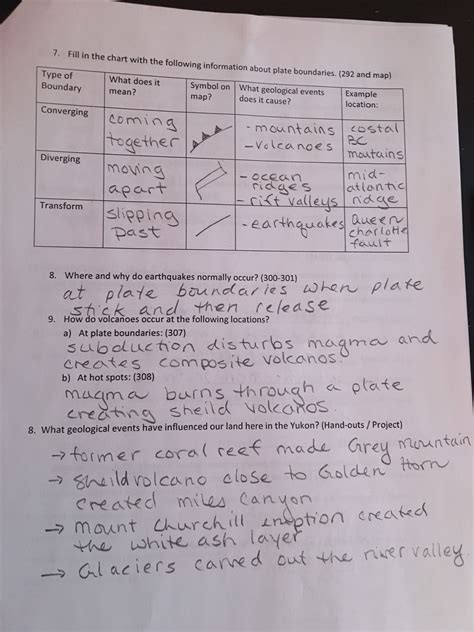 7. Fill in the chart with the following information about plate boundaries. (292 and map)
Type of Boundary | What does it mean? | Symbol on map? | What geological events does it cause? | Example location:
Converging | coming together | | - mountains - volcanoes | costal BC moutains
Diverging | moving apart | | - ocean ridges - rift valleys | mid-atlantic ridge
Transform | slipping past | | - earthquakes | Queen charlotte fault
8. Where and why do earthquakes normally occur? (300-301)
at plate boundaries when plate
stick and then release
9. How do volcanoes occur at the following locations?
a) At plate boundaries: (307)
subduction disturbs magma and
creates composite volcanos.
b) At hot spots: (308)
magma burns through a plate
creating sheild volcanos.
8. What geological events have influenced our land here in the Yukon? (Hand-outs / Project)
→ former coral reef made Grey Mountain
→ Sheild volcano close to Golden Horn
created miles Canyon
→ Mount Churchill eruption created
the white ash layer
→ Glaciers carved out the river valley.